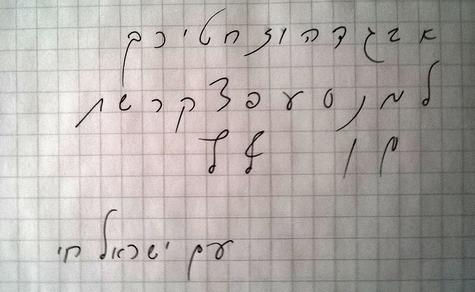 א ב ג ד ה ו ז ח ט י כ ך
ל מ נ ס ע פ צ ק ר ש ת
ם ן ף ץ
עם ישראל חי